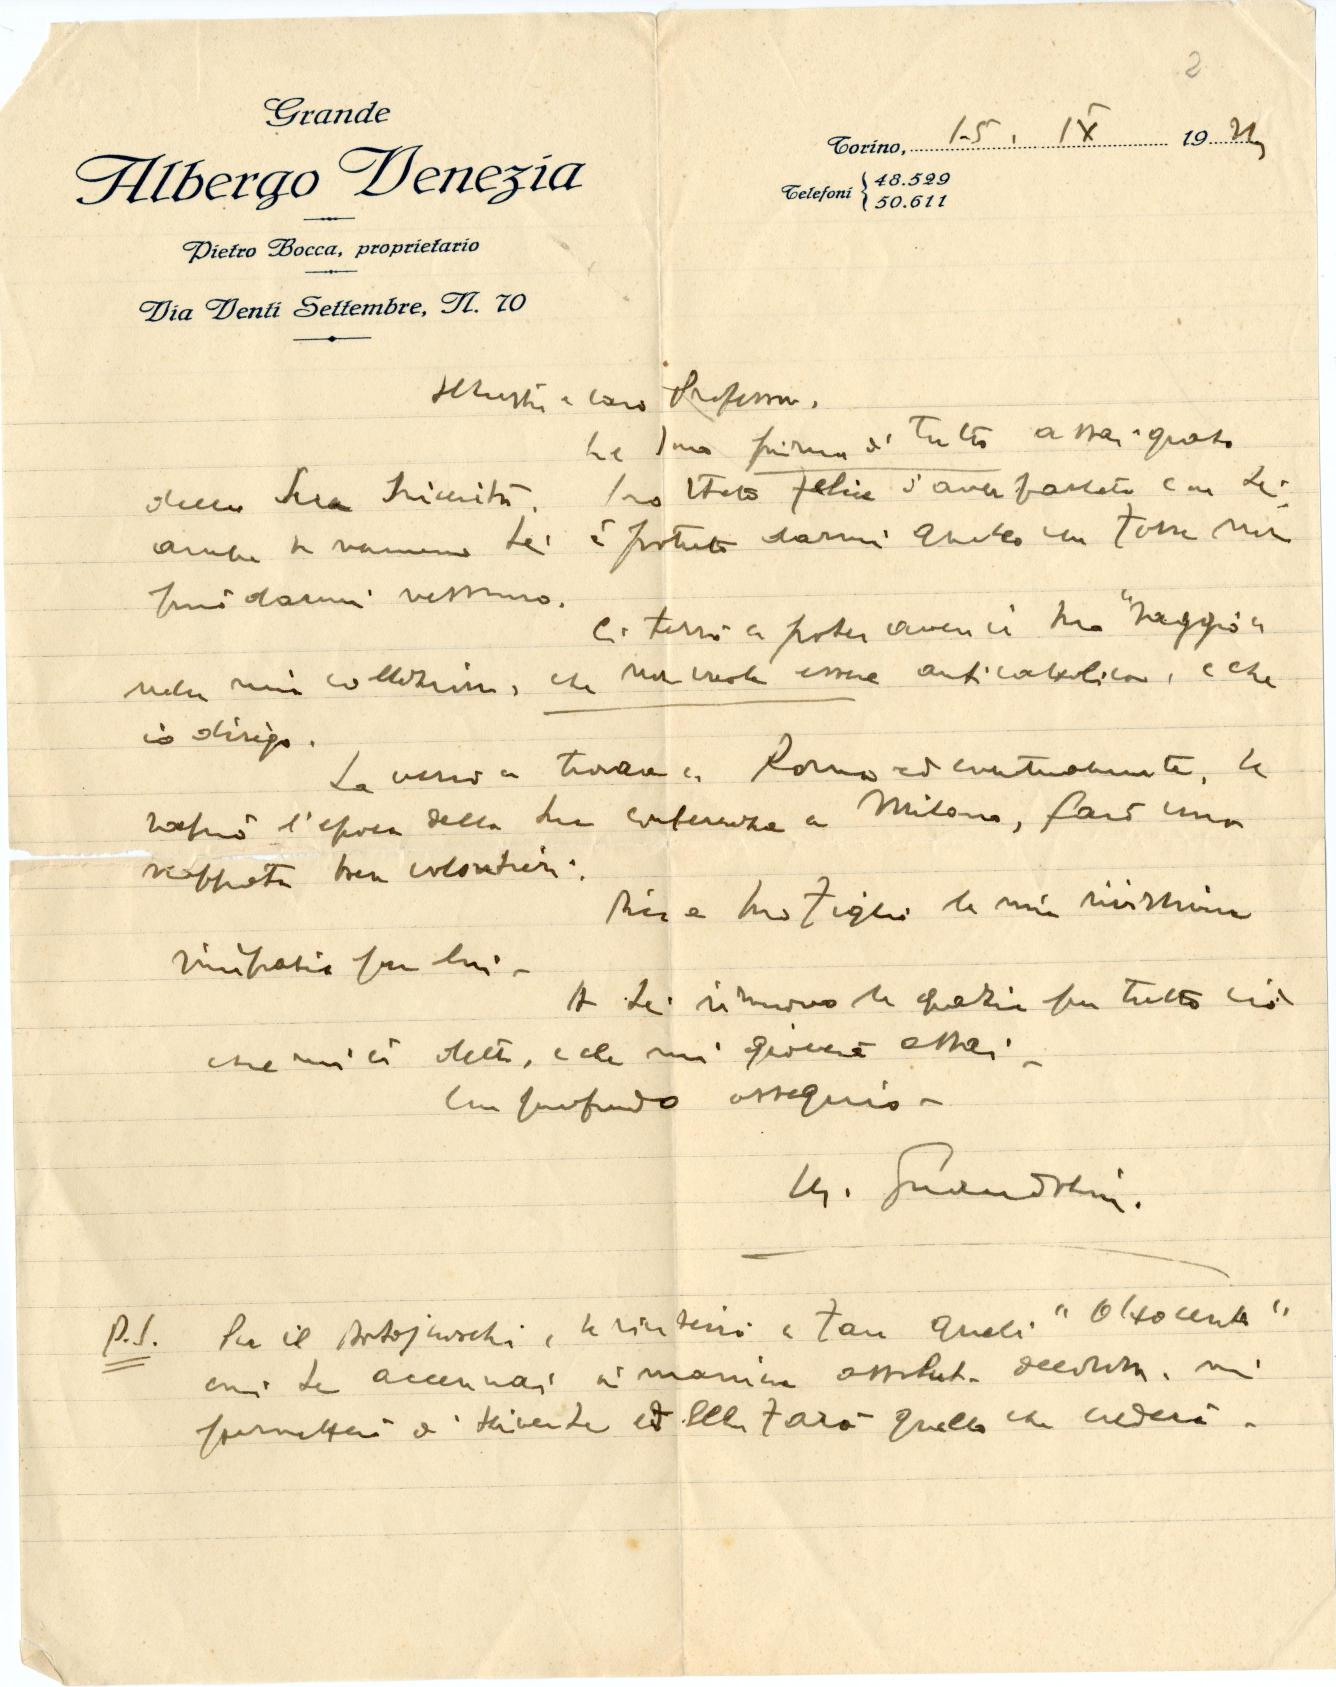 2
Grande
Albergo Venezia
Pietro Bocca, proprietario
Via Venti Settembre, N. 70
Torino, 15. IX 19
Telefoni { 48.529
50.611
Illustre e caro Professore.
Le sono prima di tutto assai grato
della Sua . Sono stato felice d'aver parlato con Lei,
anche se nemmeno Lei à potuto darmi quello che forse non
può darmi nessuno.
Ci terrò a poter avere il suo "saggio"
nella mia collezione, che non vuole essere anticattolica, e che
io dirigo.
La verrò a trovare a Roma ed eventualmente, se
saprò l'epoca della sua conferenza a Milano, farò una
scappata ben volentieri.
Dica a suo figlio la mia vivissima
simpatia per lui -
A Lei rinnovo le grazie per tutto ciò
che mi à detto, e che mi gioverà assai -
Con profondo ossequio -
P.S. Per il Dostojewschi, e fare quelli "Ottocento"
cui Le accennai in maniera assoluta decorosa, mi
permetterò di scriverLe ed Ella farà quello che crederà -